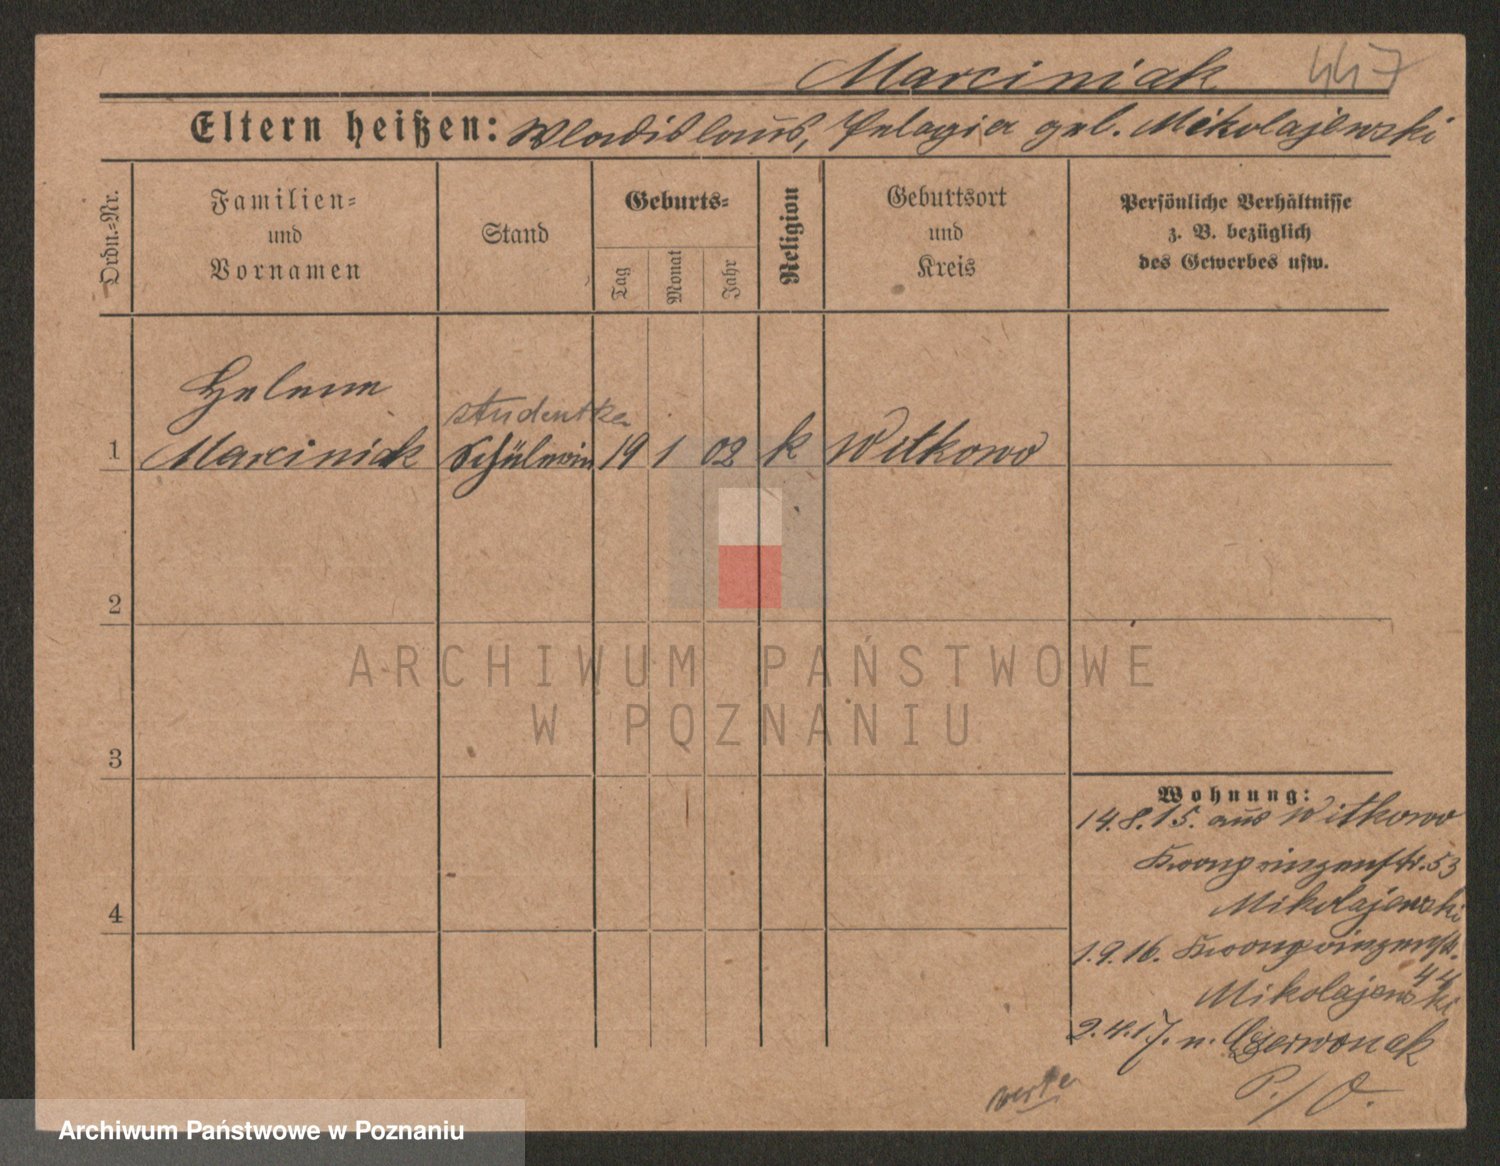 Marciniak 447
Eltern heißen: Wladislaus, Pelagia geb. Mikolajewski
Ordn.-Nr.
Familien-
und
Vornamen
Stand
Geburts-
Tag
Monat
Jahr
Religion
Geburtsort
und
Kreis
Persönliche Verhältnisse
z. B. bezüglich
des Gewerbes usw.
Helene
studentka
1 Marciniak Schülerin 19 1 02 k Witkowo
2
ARCHIWUM PAŃSTWOWE
W POZNANIU
3
Wohnung:
14.8.15. aus Witkowo
Kronprinzenstr. 53
Mikolajewski
4
1.9.16. Kronprinzenstr.
44
Mikolajewski
2.4.17. n. Czerwonak
verte
P./O.
Archiwum Państwowe w Poznaniu